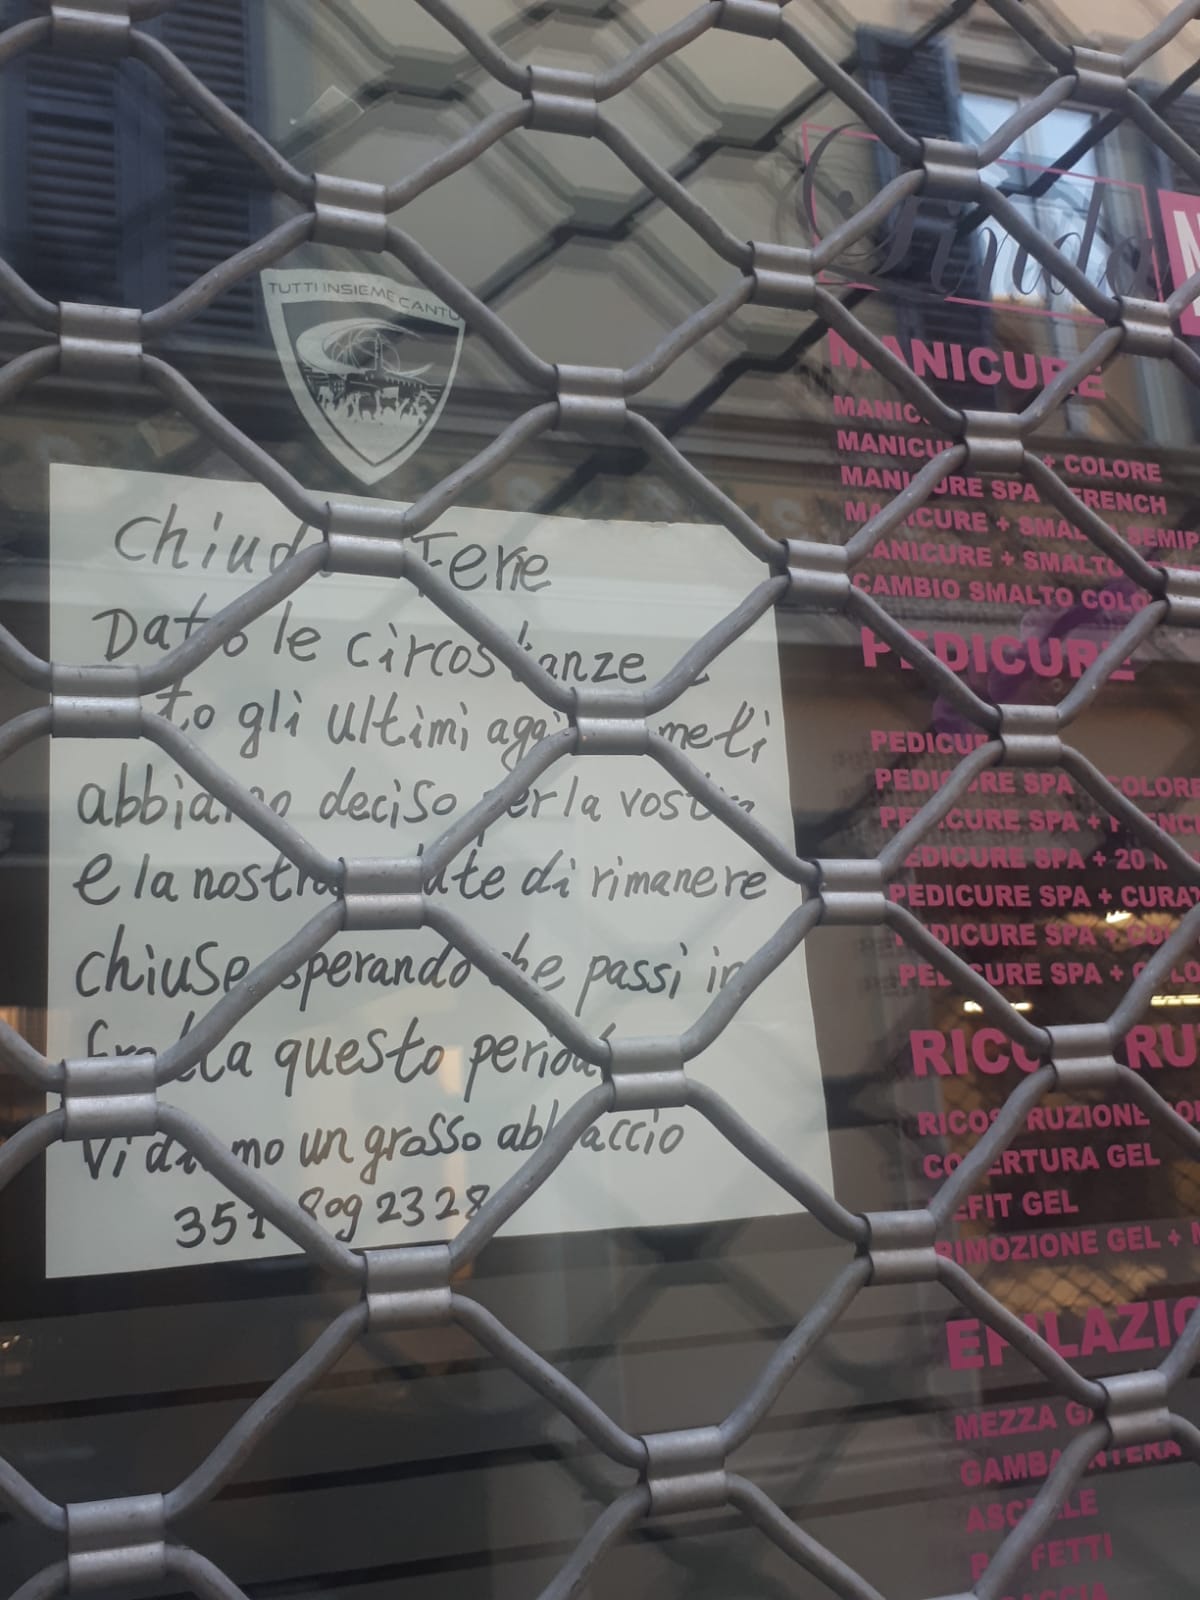 TUTTI INSIEME CANTU
chiuso Ferie
Datto le circostanze
gli ultimi
abbiamo deciso per la vostra
e la nostra salute di rimanere
chiuse sperando che passi in
fretta questo periodo
Vi diamo un grosso abbraccio
351 809 2328
Ginda
MANICURE
MANICURE + COLORE
MANICURE SPA FRENCH
MANICURE + SMALTO SEMIP
MANICURE + SMALTO
CAMBIO SMALTO COLO
PEDICURE
PEDICURE
PEDICURE SPA COLORE
PEDICURE SPA + FRENC
PEDICURE SPA + 20
PEDICURE SPA + CURAT
PEDICURE SPA +
PEDICURE SPA +
RICOSTRU
RICOSTRUZIONE
COPERTURA GEL
REFIT GEL
RIMOZIONE GEL +
EPILAZIO
MEZZA
GAMBA INTERA
ASCELLE
BAFFETTI